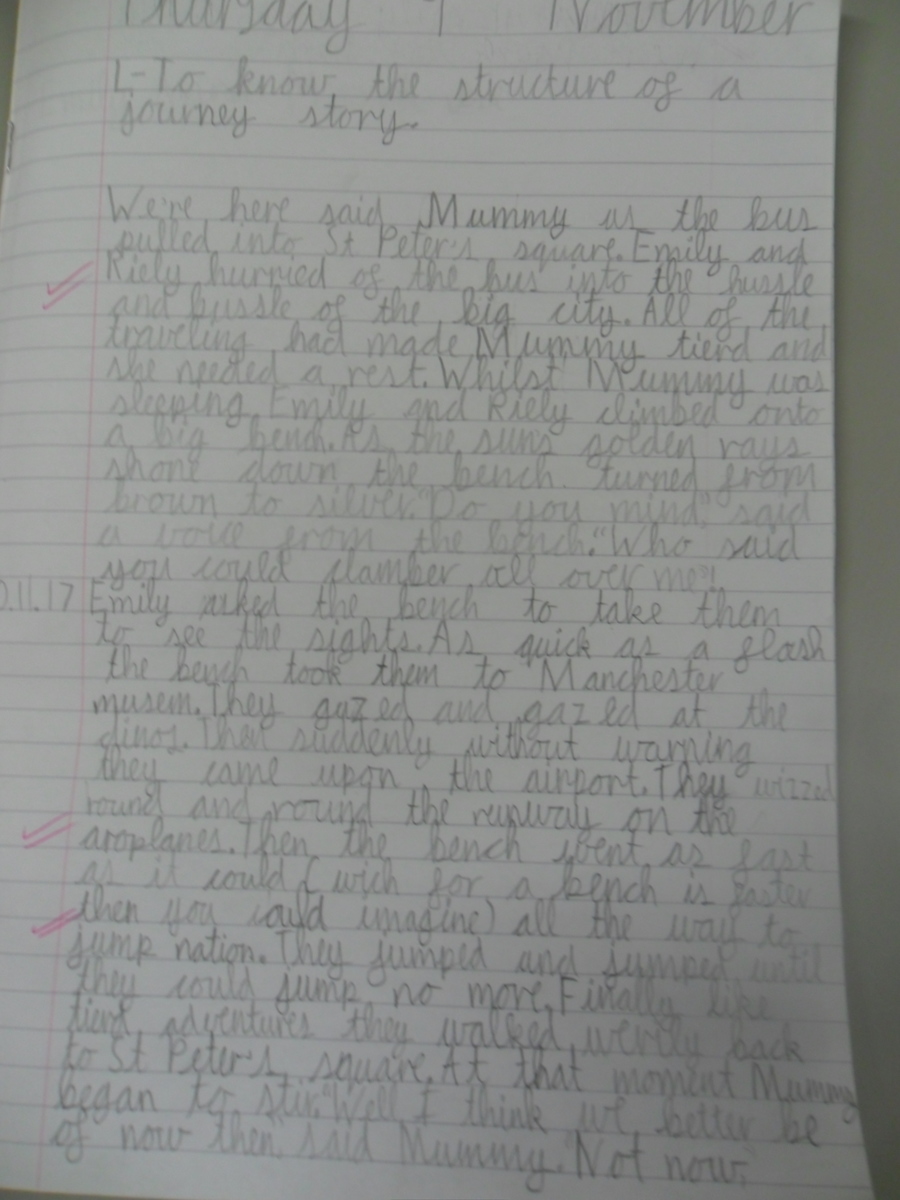 Thursday 9 November
L-To know the structure of a
journey story.
We're here said Mummy as the bus
pulled into St Peter's square. Emily and
Riely hurried of the bus into the hussle
and bussle of the big city. All of the
traveling had made Mummy tierd and
she needed a rest. Whilst Mummy was
sleeping Emily and Riely climbed onto
a big bench. As the suns golden rays
shone down the bench turned from
brown to silver. "Do you mind" said
a voice from the bench. "Who said
you could clamber all over me"!
0.11.17 Emily asked the bench to take them
to see the sights. As quick as a flash
the bench took them to Manchester
musem. They gazed and gazed at the
dinos. Then suddenly without warning
they came upon the airport. They wizzed
round and round the runway on the
aroplanes. Then the bench went as fast
as it could (wich for a bench is faster
then you could imagine) all the way to
jump nation. They jumped and jumped until
they could jump no more. Finally like
tierd adventures they walked werily back
to St Peter's square. At that moment Mummy
began to stir. "Well I think we better be
of now then" said Mummy. Not now,